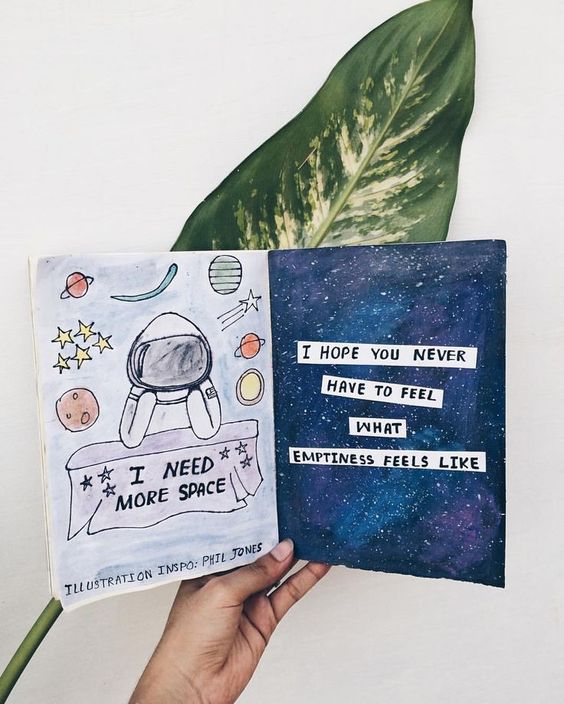 I NEED
MORE SPACE
ILLUSTRATION INSPO: PHIL JONES
I HOPE YOU NEVER
HAVE TO FEEL
WHAT
EMPTINESS FEELS LIKE